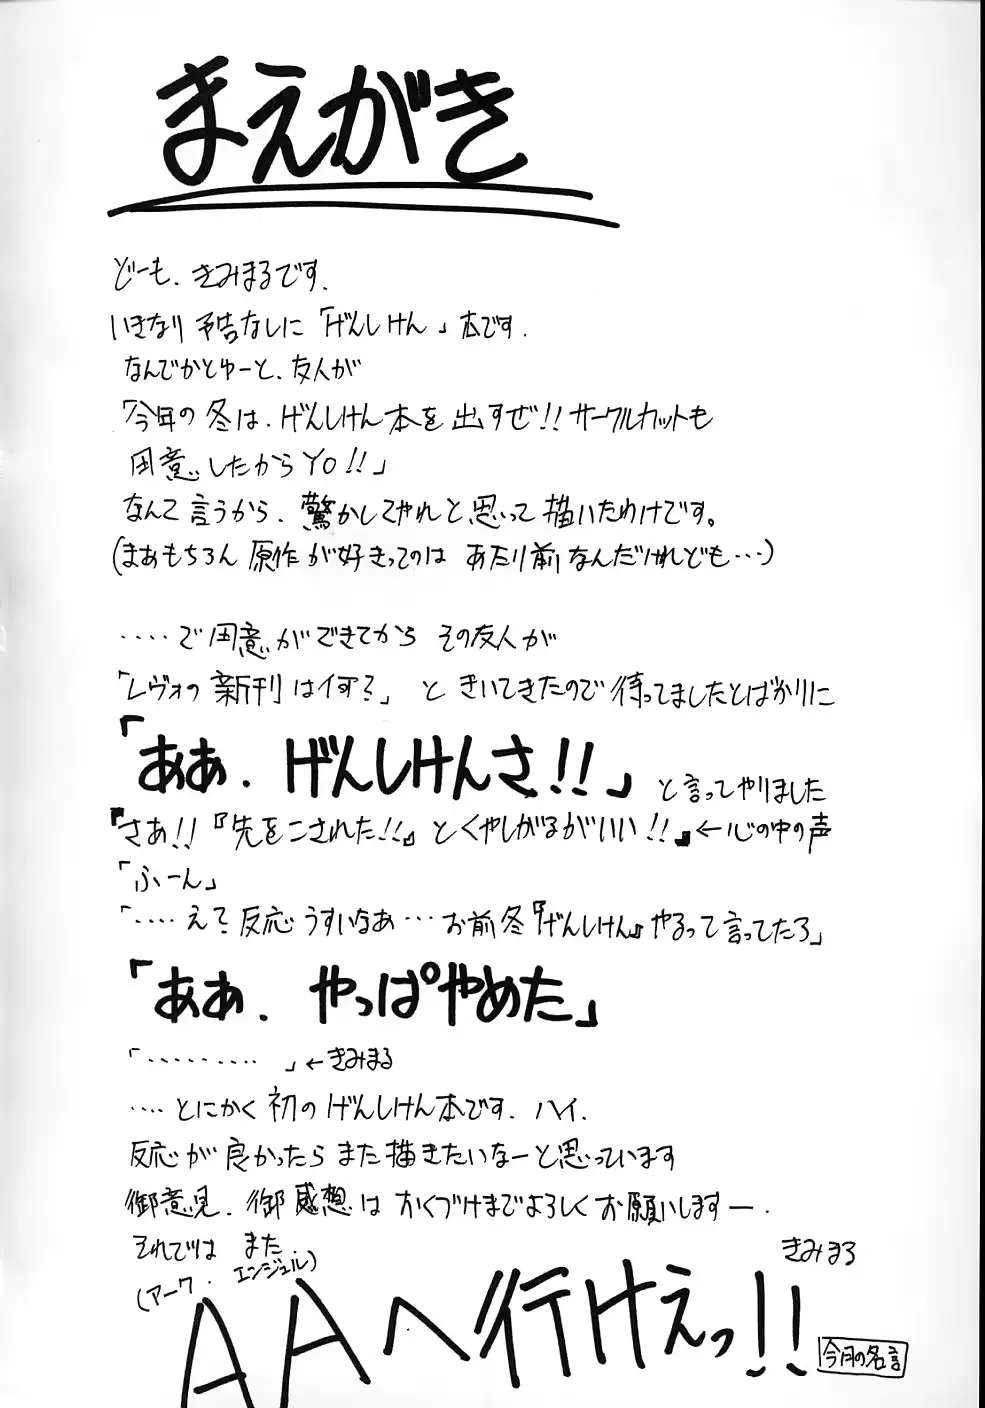 まえがき
どーも、きみまるです。
いきなり予告なしに「げんしけん」本です。
なんでかとゆーと、友人が
「今年の冬は、げんしけん本を出すぜ!!サークルカットも
用意したからYO!!」
なんて言うから、驚かしてやれと思って描いたわけです。
(まあもちろん原作が好きってのはあたり前なんだけれども…)
‥‥で用意ができてからその友人が
「レヴォの新刊は何?」ときいてきたので待ってましたとばかりに
「ああ、げんしけんさ!!」と言ってやりました
『さあ!!『先をこされた!!』とくやしがるがいい!!』←心の中の声
「ふーん」
「‥‥えて反応うすいなあ…お前冬『げんしけん』やるって言ってたろ」
「ああ、やっぱやめた」
「‥‥‥‥‥」←きみまる
‥‥とにかく初のげんしけん本です。ハイ。
反応が良かったらまた描きたいなーと思っています
御意見、御感想はかくづけまでよろしくお願いしますー。
それではまた
きみまる
(アーク・エンジェル)
AAへ行けぇっ!!
今月の名言